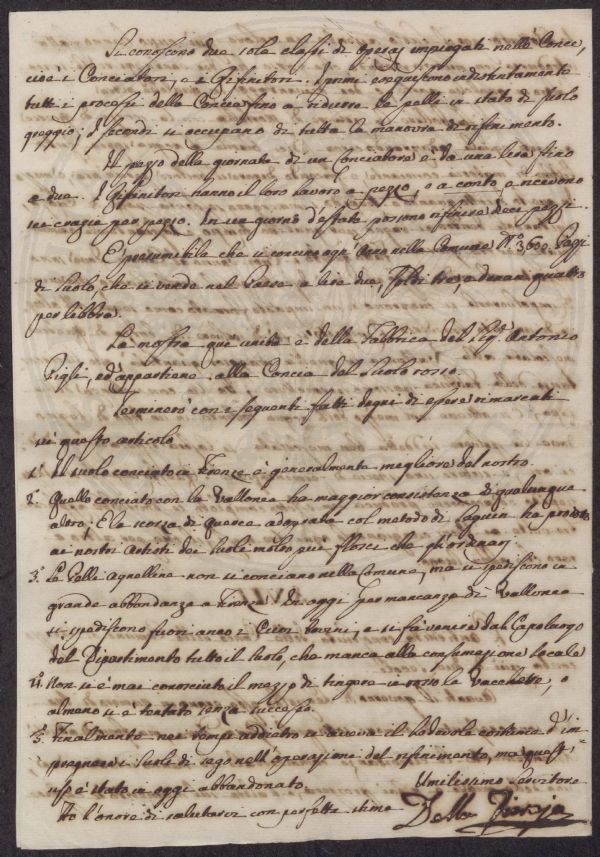 Si conoscono due sole classi di operaj impiegati nelle Conce,
cioè i Conciatori, e i Rifinitori. I primi eseguiscono indistintamente
tutti i processi della Concia fino a ridurre le pelli in stato di suolo
greggio; I secondi si occupano di tutta la manovra di rifinimento.
Il prezzo della giornata di un Conciatore è da una lira fino
a due. I Rifinitori hanno il loro lavoro a pezzo, o a conto, e ricevono
sei crazie per pezzo. In un giorno d'estate possono rifinire dieci pezzi.
È presumibile che si concino ogn'anno nella Comune N.° 3,600. Pezzi
di suolo, che si vende nel Paese a lire due, soldi tre, e denari quattro
per libbra.
La mostra qui unita è della Fabbrica del Sig.r Antonio
Pigli, ed appartiene alla Concia del Suolo rosso.
Terminerò con i seguenti fatti degni di essere rimarcati
in questo articolo
1.° Il suolo conciato in Firenze è generalmente migliore del nostro.
2.° Quello conciato con la Vallonea ha maggior consistenza di qualunque
altro; E la scorza di querce adoprata col metodo di Seguin ha prodotto
ai nostri Artisti dei suoli molto più flosci che gl'ordinarj.
3.° Le Pelli agnelline non si conciano nella Comune, ma si spediscono in
grande abbondanza a Firenze. Di oggi per mancanza di Vallonea
si spediscono fuori anco i Cuoi bovini, e si fà venire dal Capoluogo
del Dipartimento tutto il suolo, che manca alla consumazione locale
4.° Non si è mai conosciuto il mezzo di tingere in rosso le Vacchette, o
almeno si è tentato senza successo.
5.° Finalmente nei tempi addietro si aveva il lodevole costume d'im-
pregnare i suoli di sego nell'operazione del rifinimento, ma quest'
uso è stato in oggi abbandonato.
Umilissimo Servitore
Ho l'onore di salutarvi con perfetta stima
Della